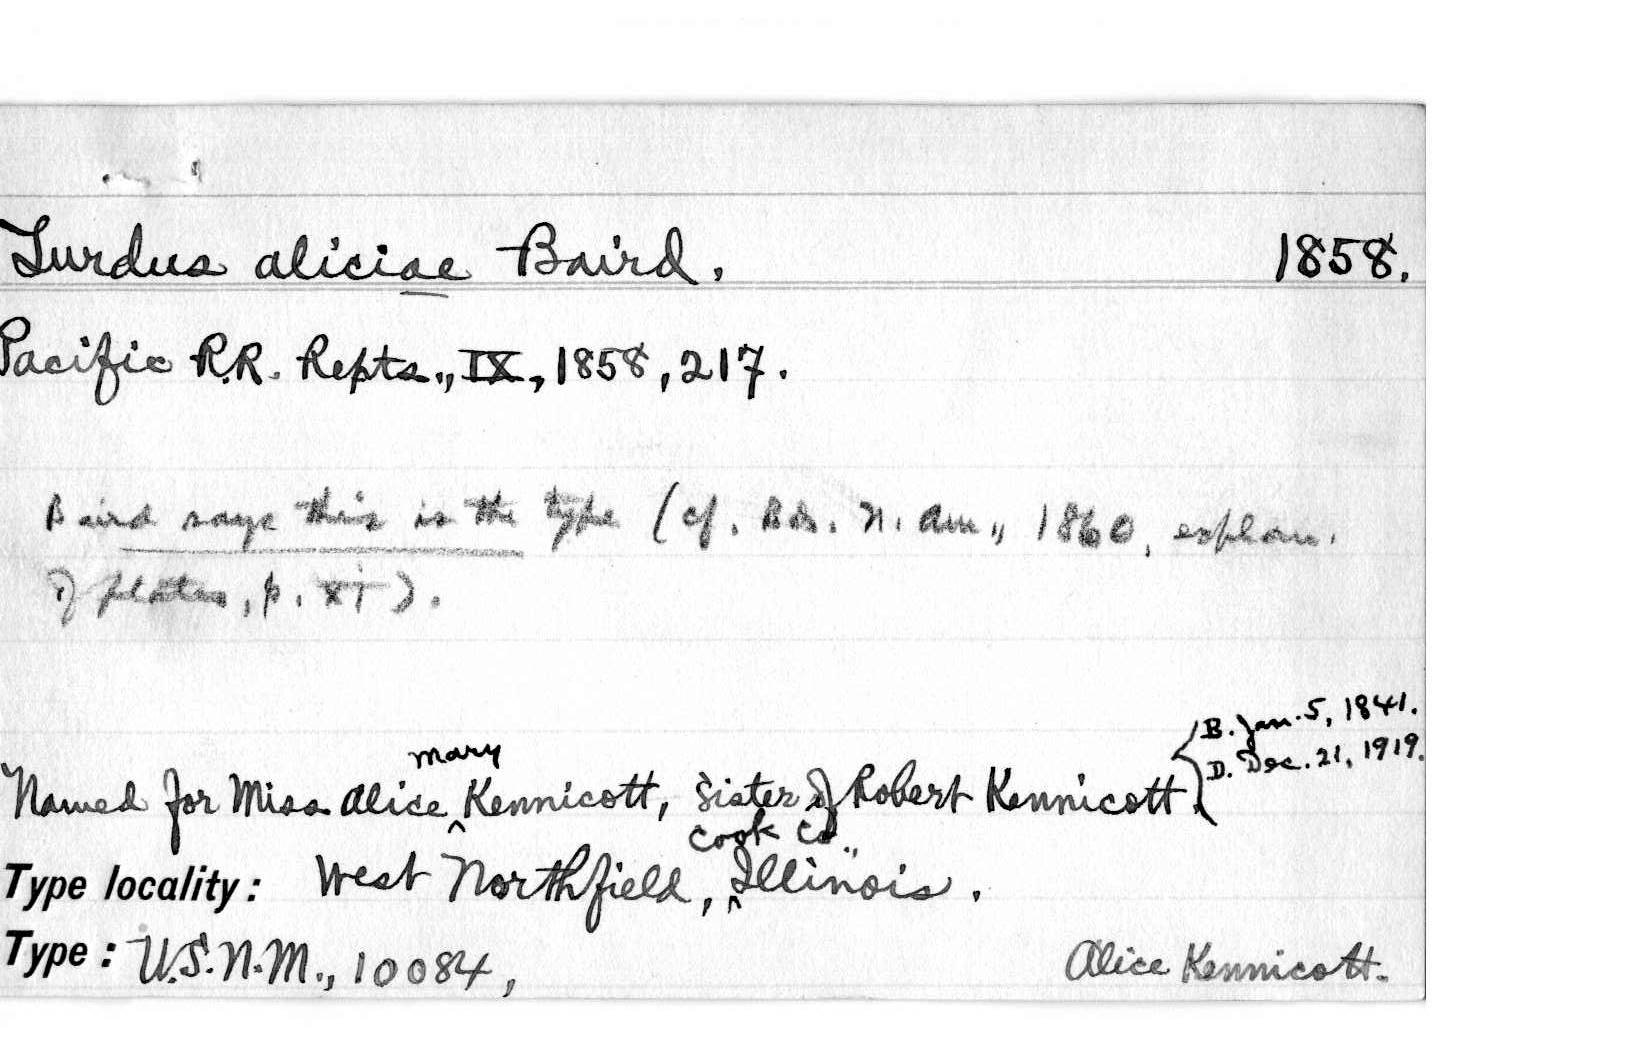 Turdus aliciae Baird. 1858.
Pacific R.R. Repts., IX, 1858, 217.
Baird says this is the type (cf. Bds. N. Am., 1860, explan.
of plates, p. XI).
B. Jan. 5, 1841.
D. Dec. 21, 1919.
Mary
Named for Miss Alice ^ Kennicott, Sister of Robert Kennicott.
Cook Co.,
Type locality: West Northfield, ^ Illinois.
Type: U.S.N.M., 10084, Alice Kennicott.